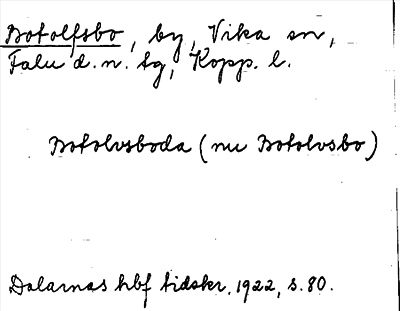 Botolfsbo, by, Vika sn,
Falu d. n. tg, Kopp. l.
Botolvsboda (nu Botolvsbo)
Dalarnas hbf tidskr. 1922, s. 80.